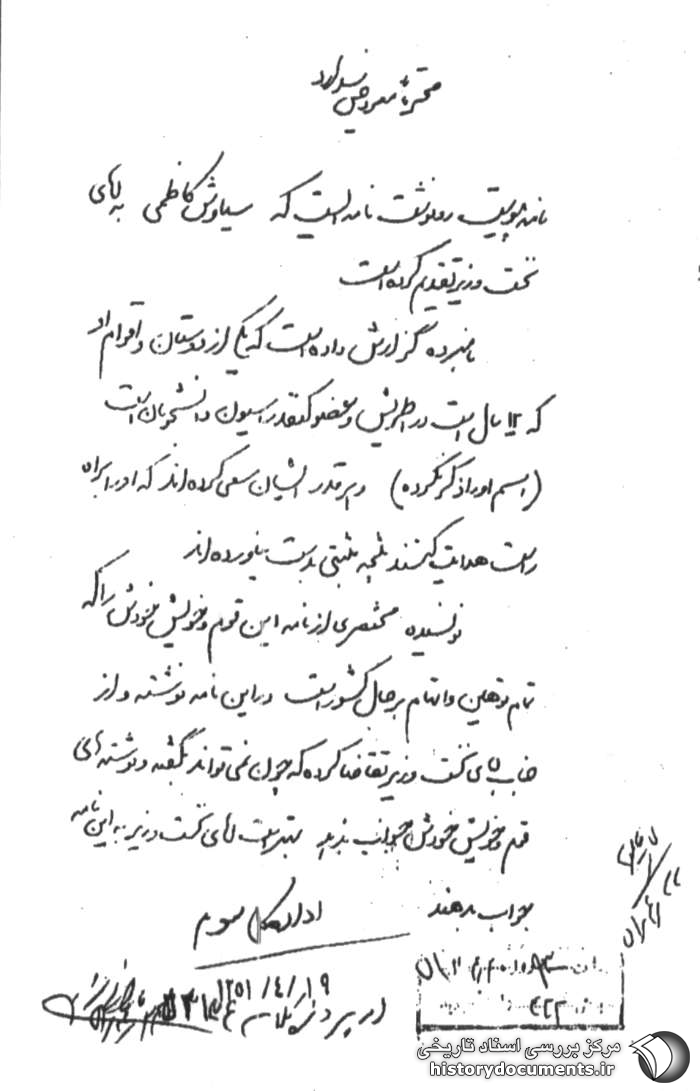 محترماً معروض میدارد
نامه پیوست رونوشت نامه ایست که سیاوش کاظمی به آقای
نخست وزیر تقدیم کرده است
نامبرده گزارش داده است که یکی از دوستان و اقوام او
که ۱۲ سال است در اطریش و عضو کنفدراسیون دانشجویان است
(اسم او را ذکر نکرده) و هر قدر ایشان سعی کرده اند که او را براه
راست هدایت کنند نتیجه مثبتی بدست نیاورده اند
نویسنده مختصری از نامه این قوم و خویش خودش را که
تمام توهین و اتهام برجال کشور است در این نامه نوشته و از
جناب آقای نخست وزیر تقاضا کرده که چون نمی تواند بگفته و نوشته های
قوم و خویش خودش جواب بدهد بهتر است آقای نخست وزیر به این نامه
جواب بدهند
اداره کل سوم
۱۳۵۱/۴/۱۹
مرکز بررسی اسناد تاریخی
historydocuments.ir